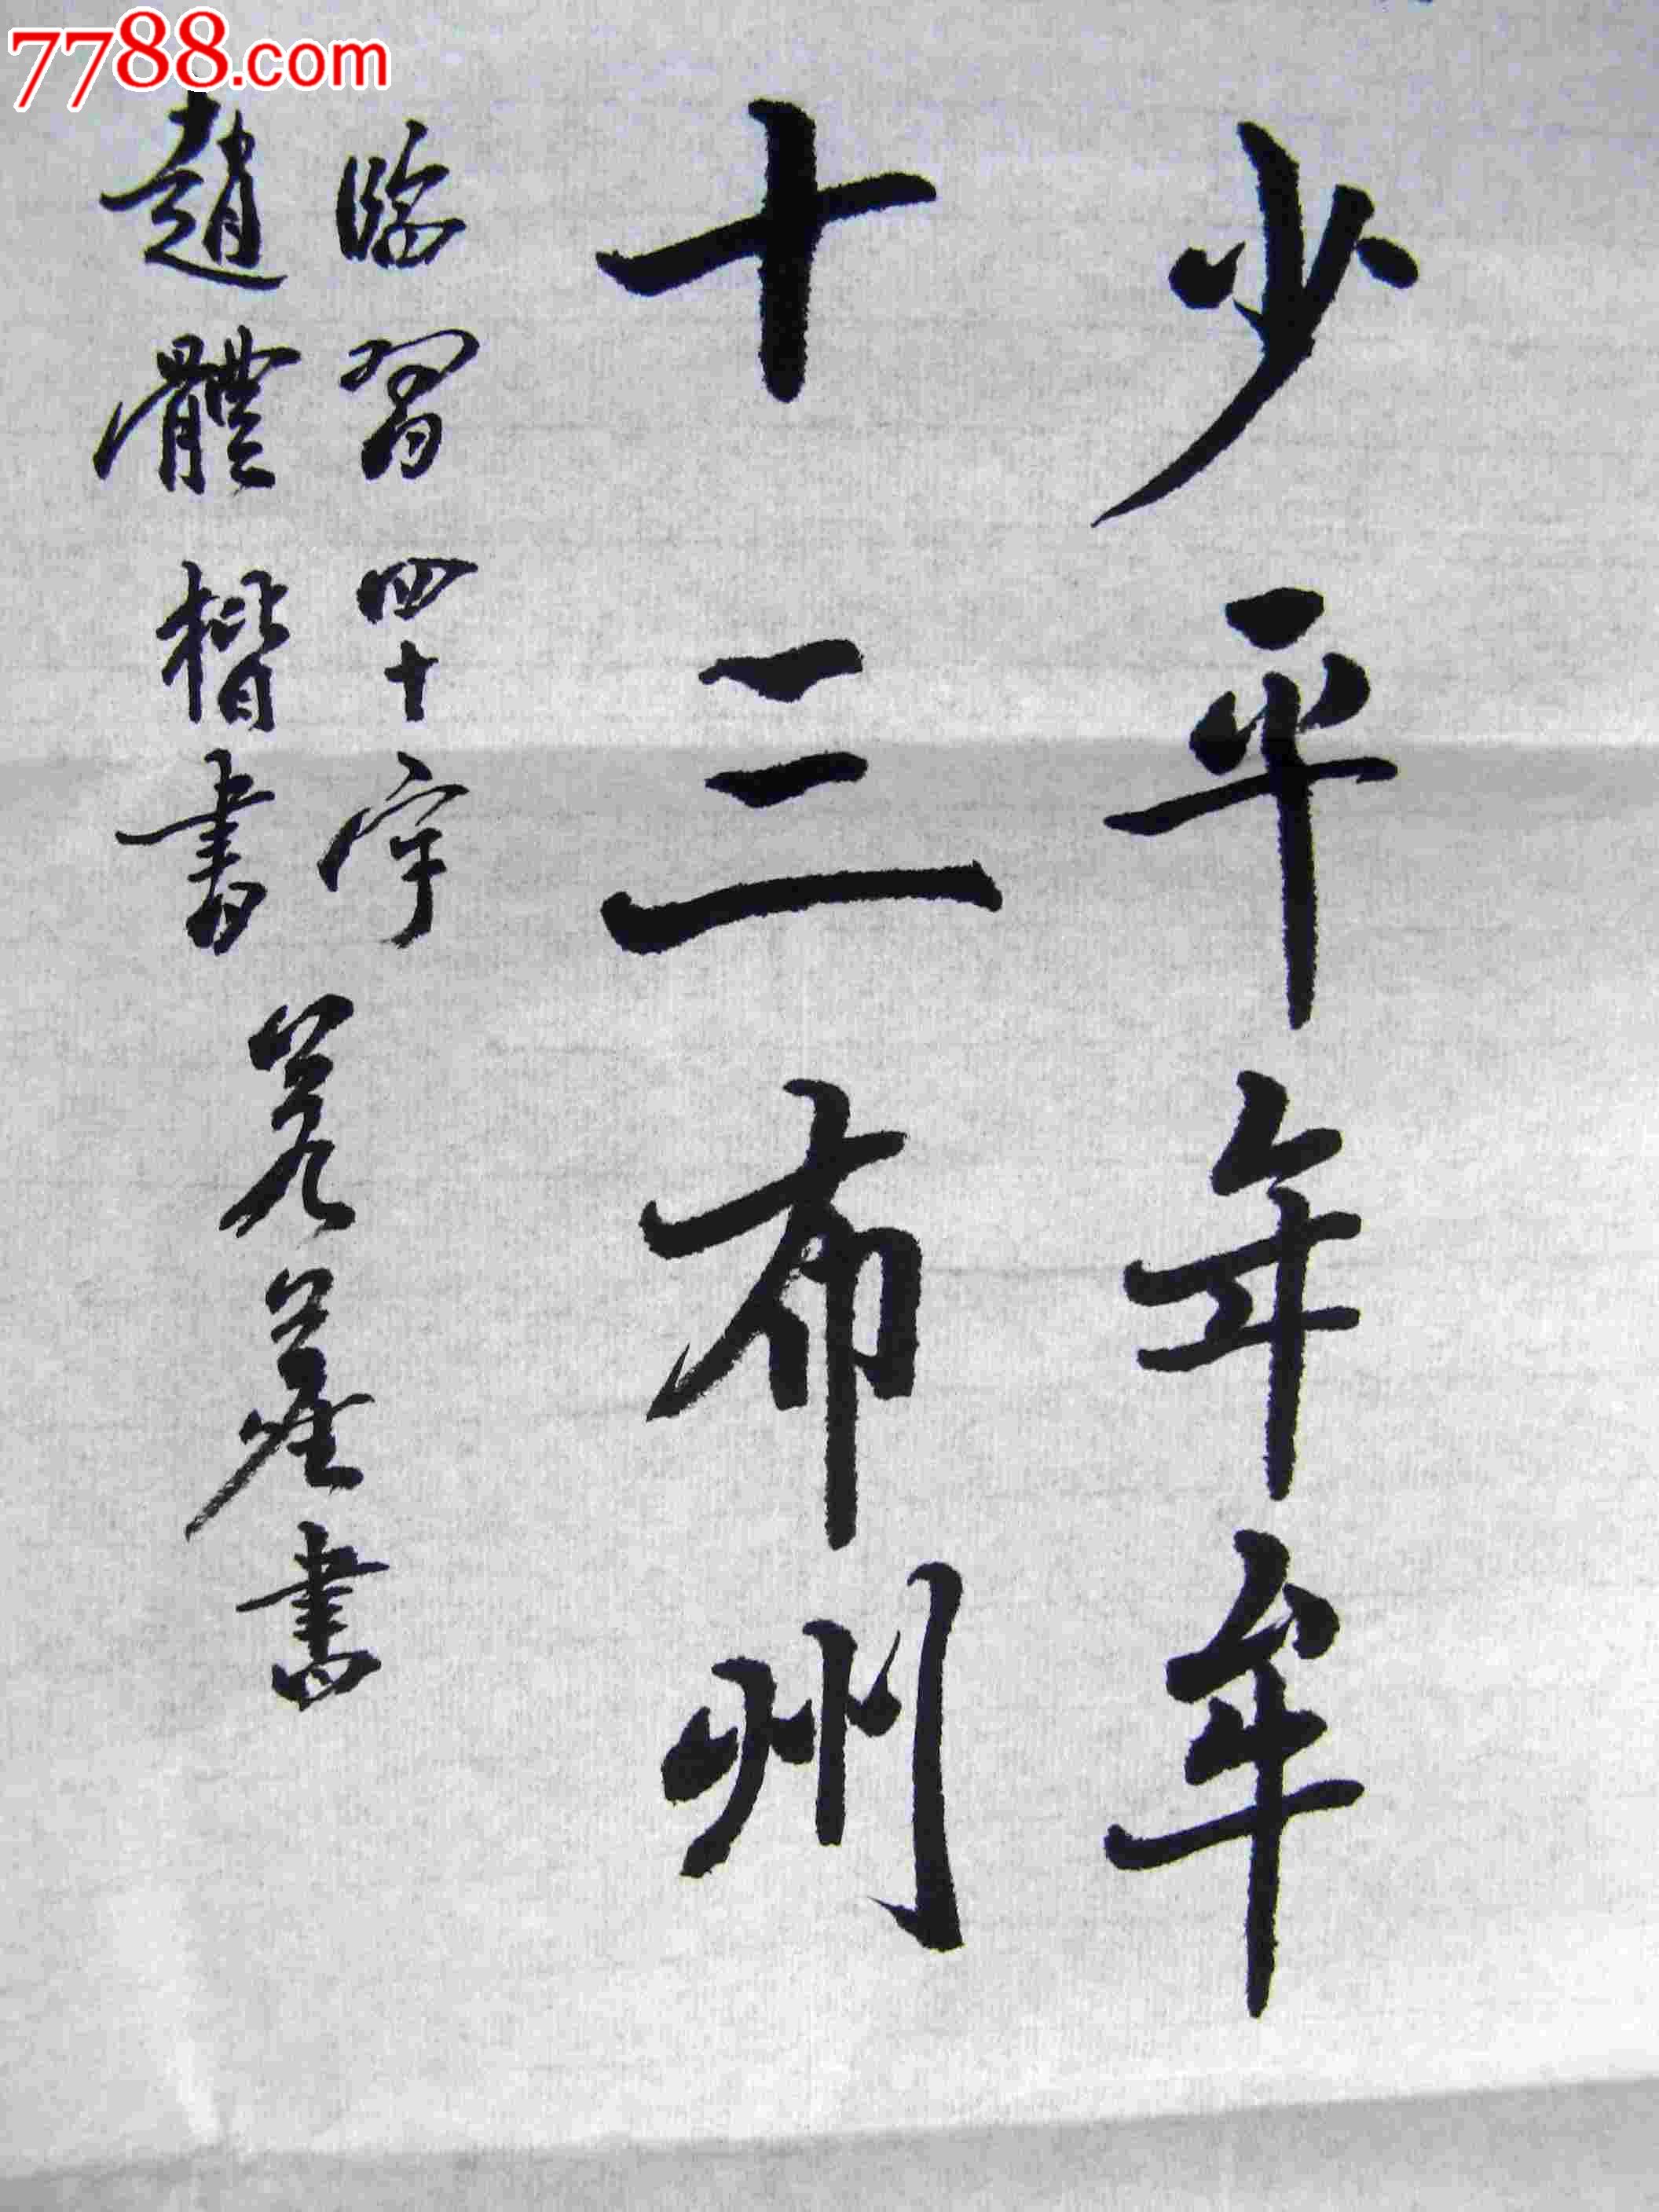 7788.com
少平年牟
十三布州
臨習四十字
趙體楷書
若
書